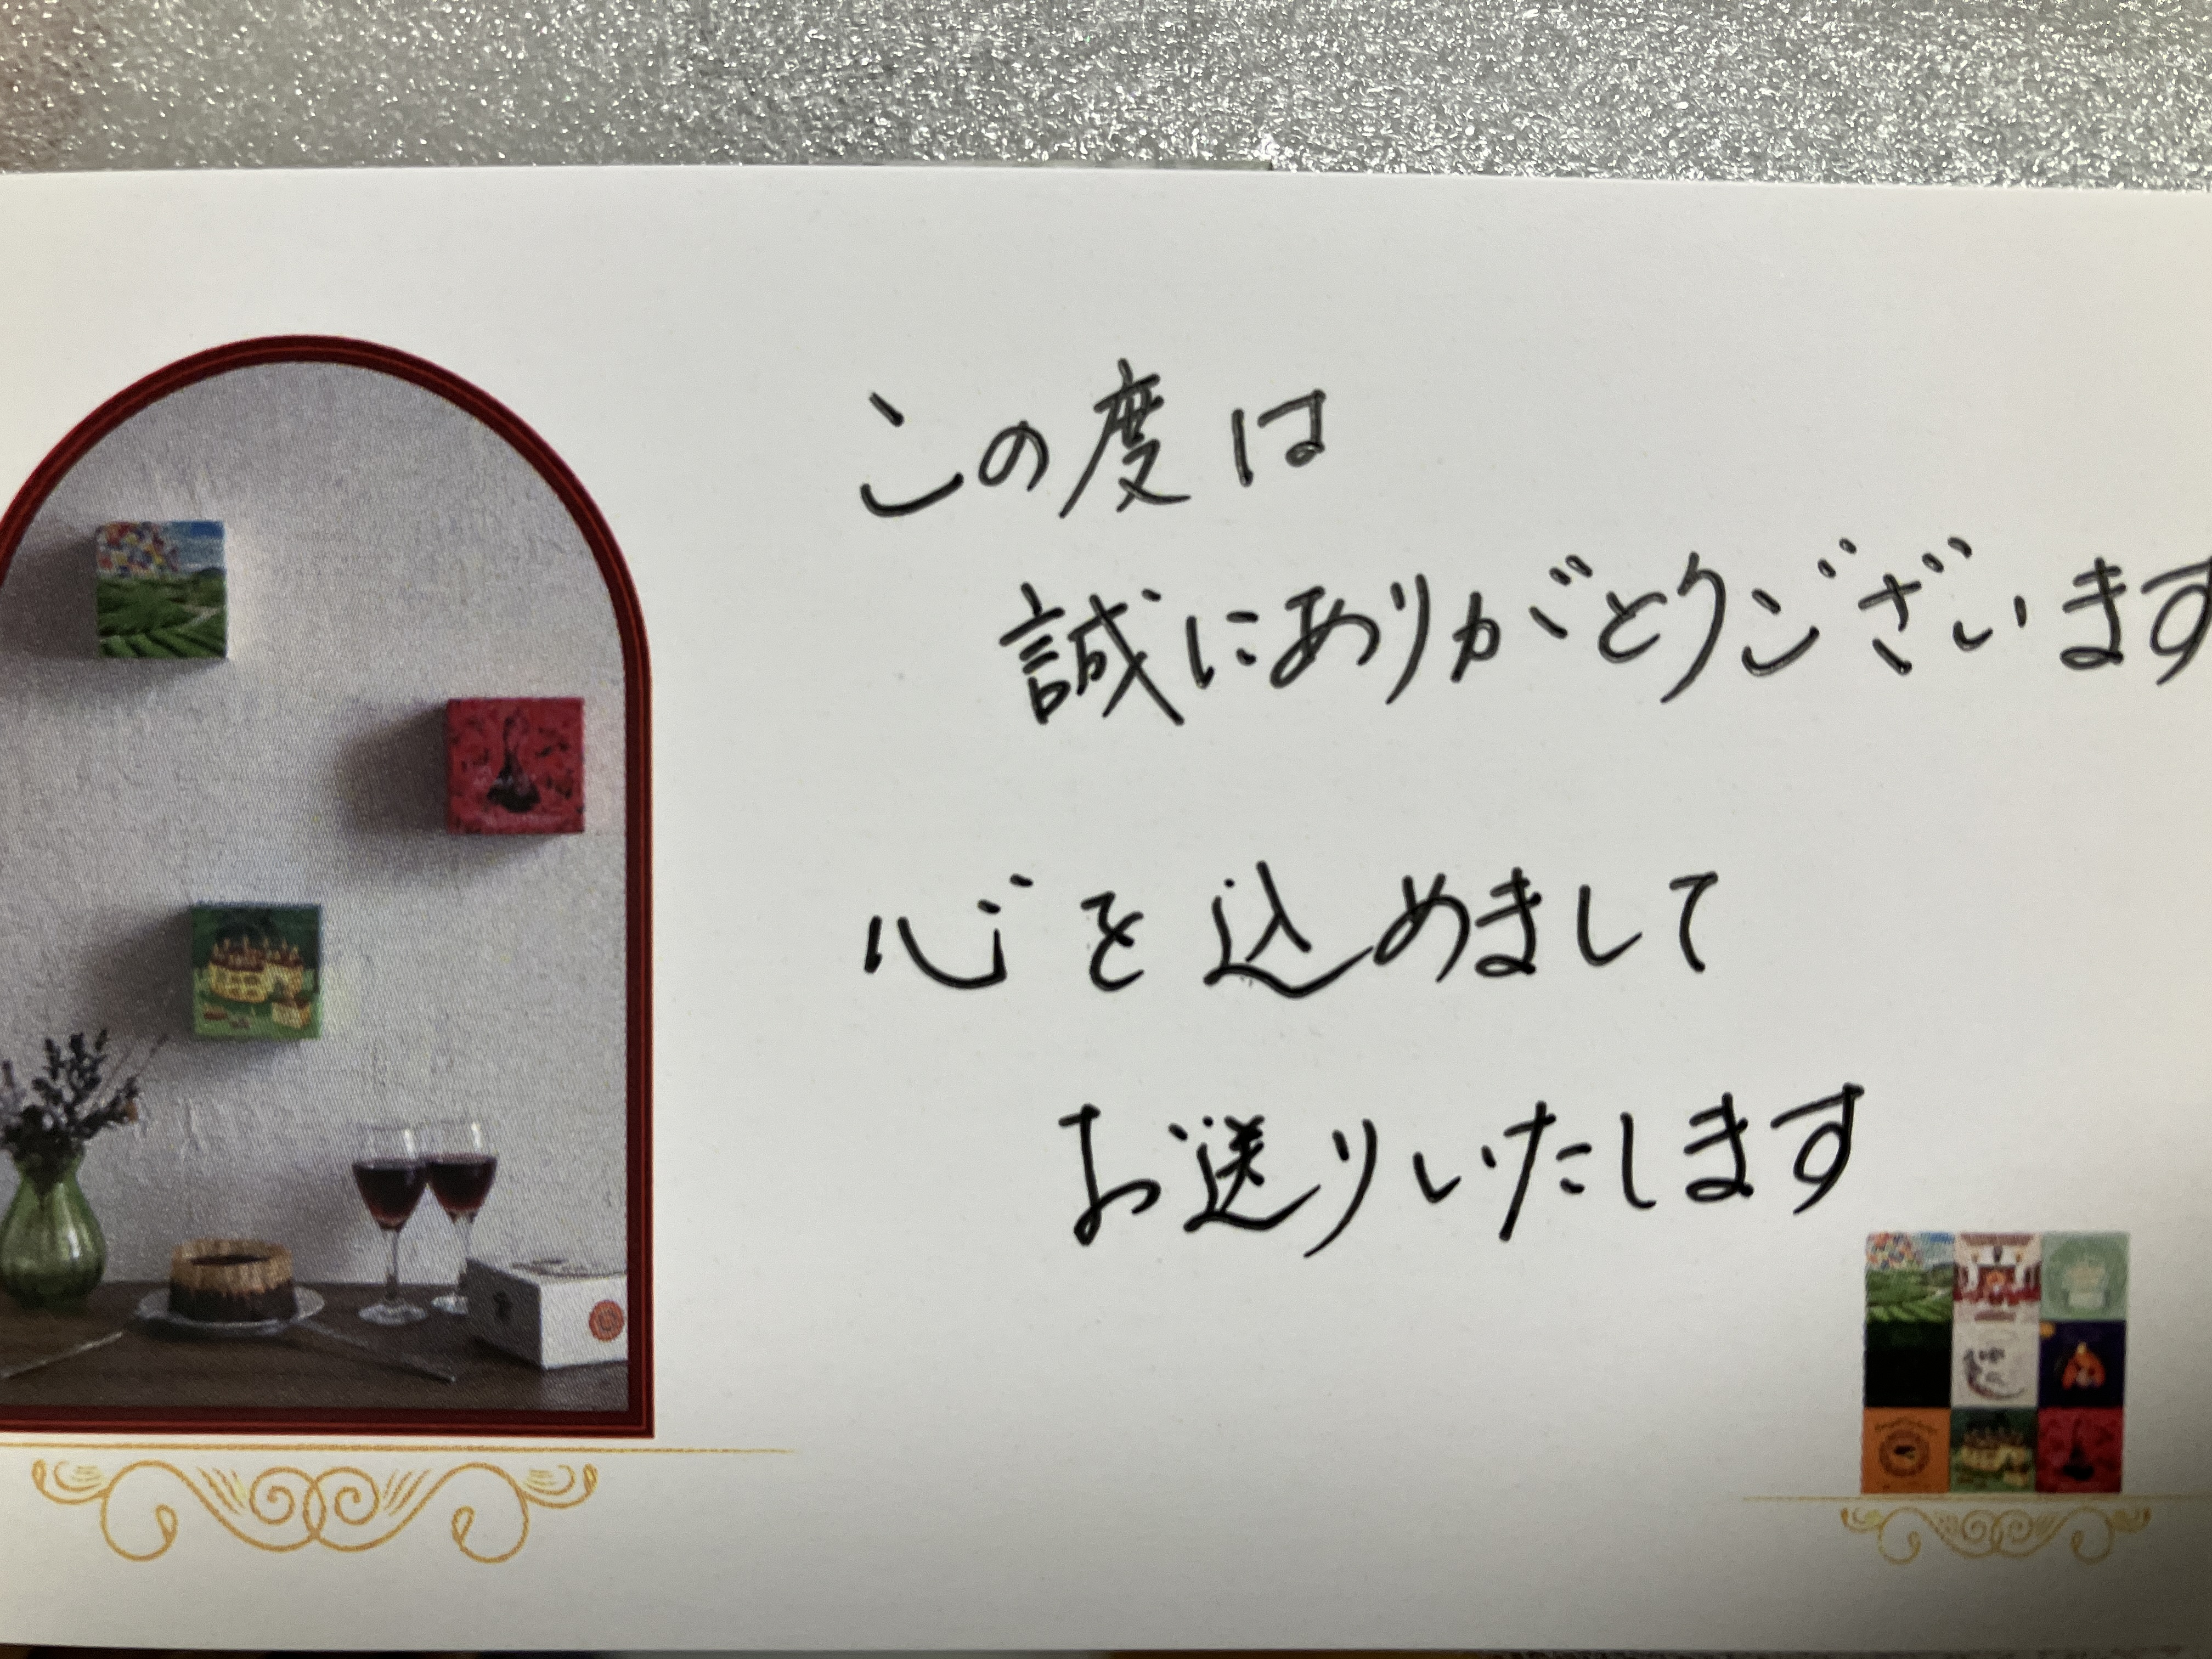 この度は
誠にありがとうございます
心を込めまして
お送りいたします